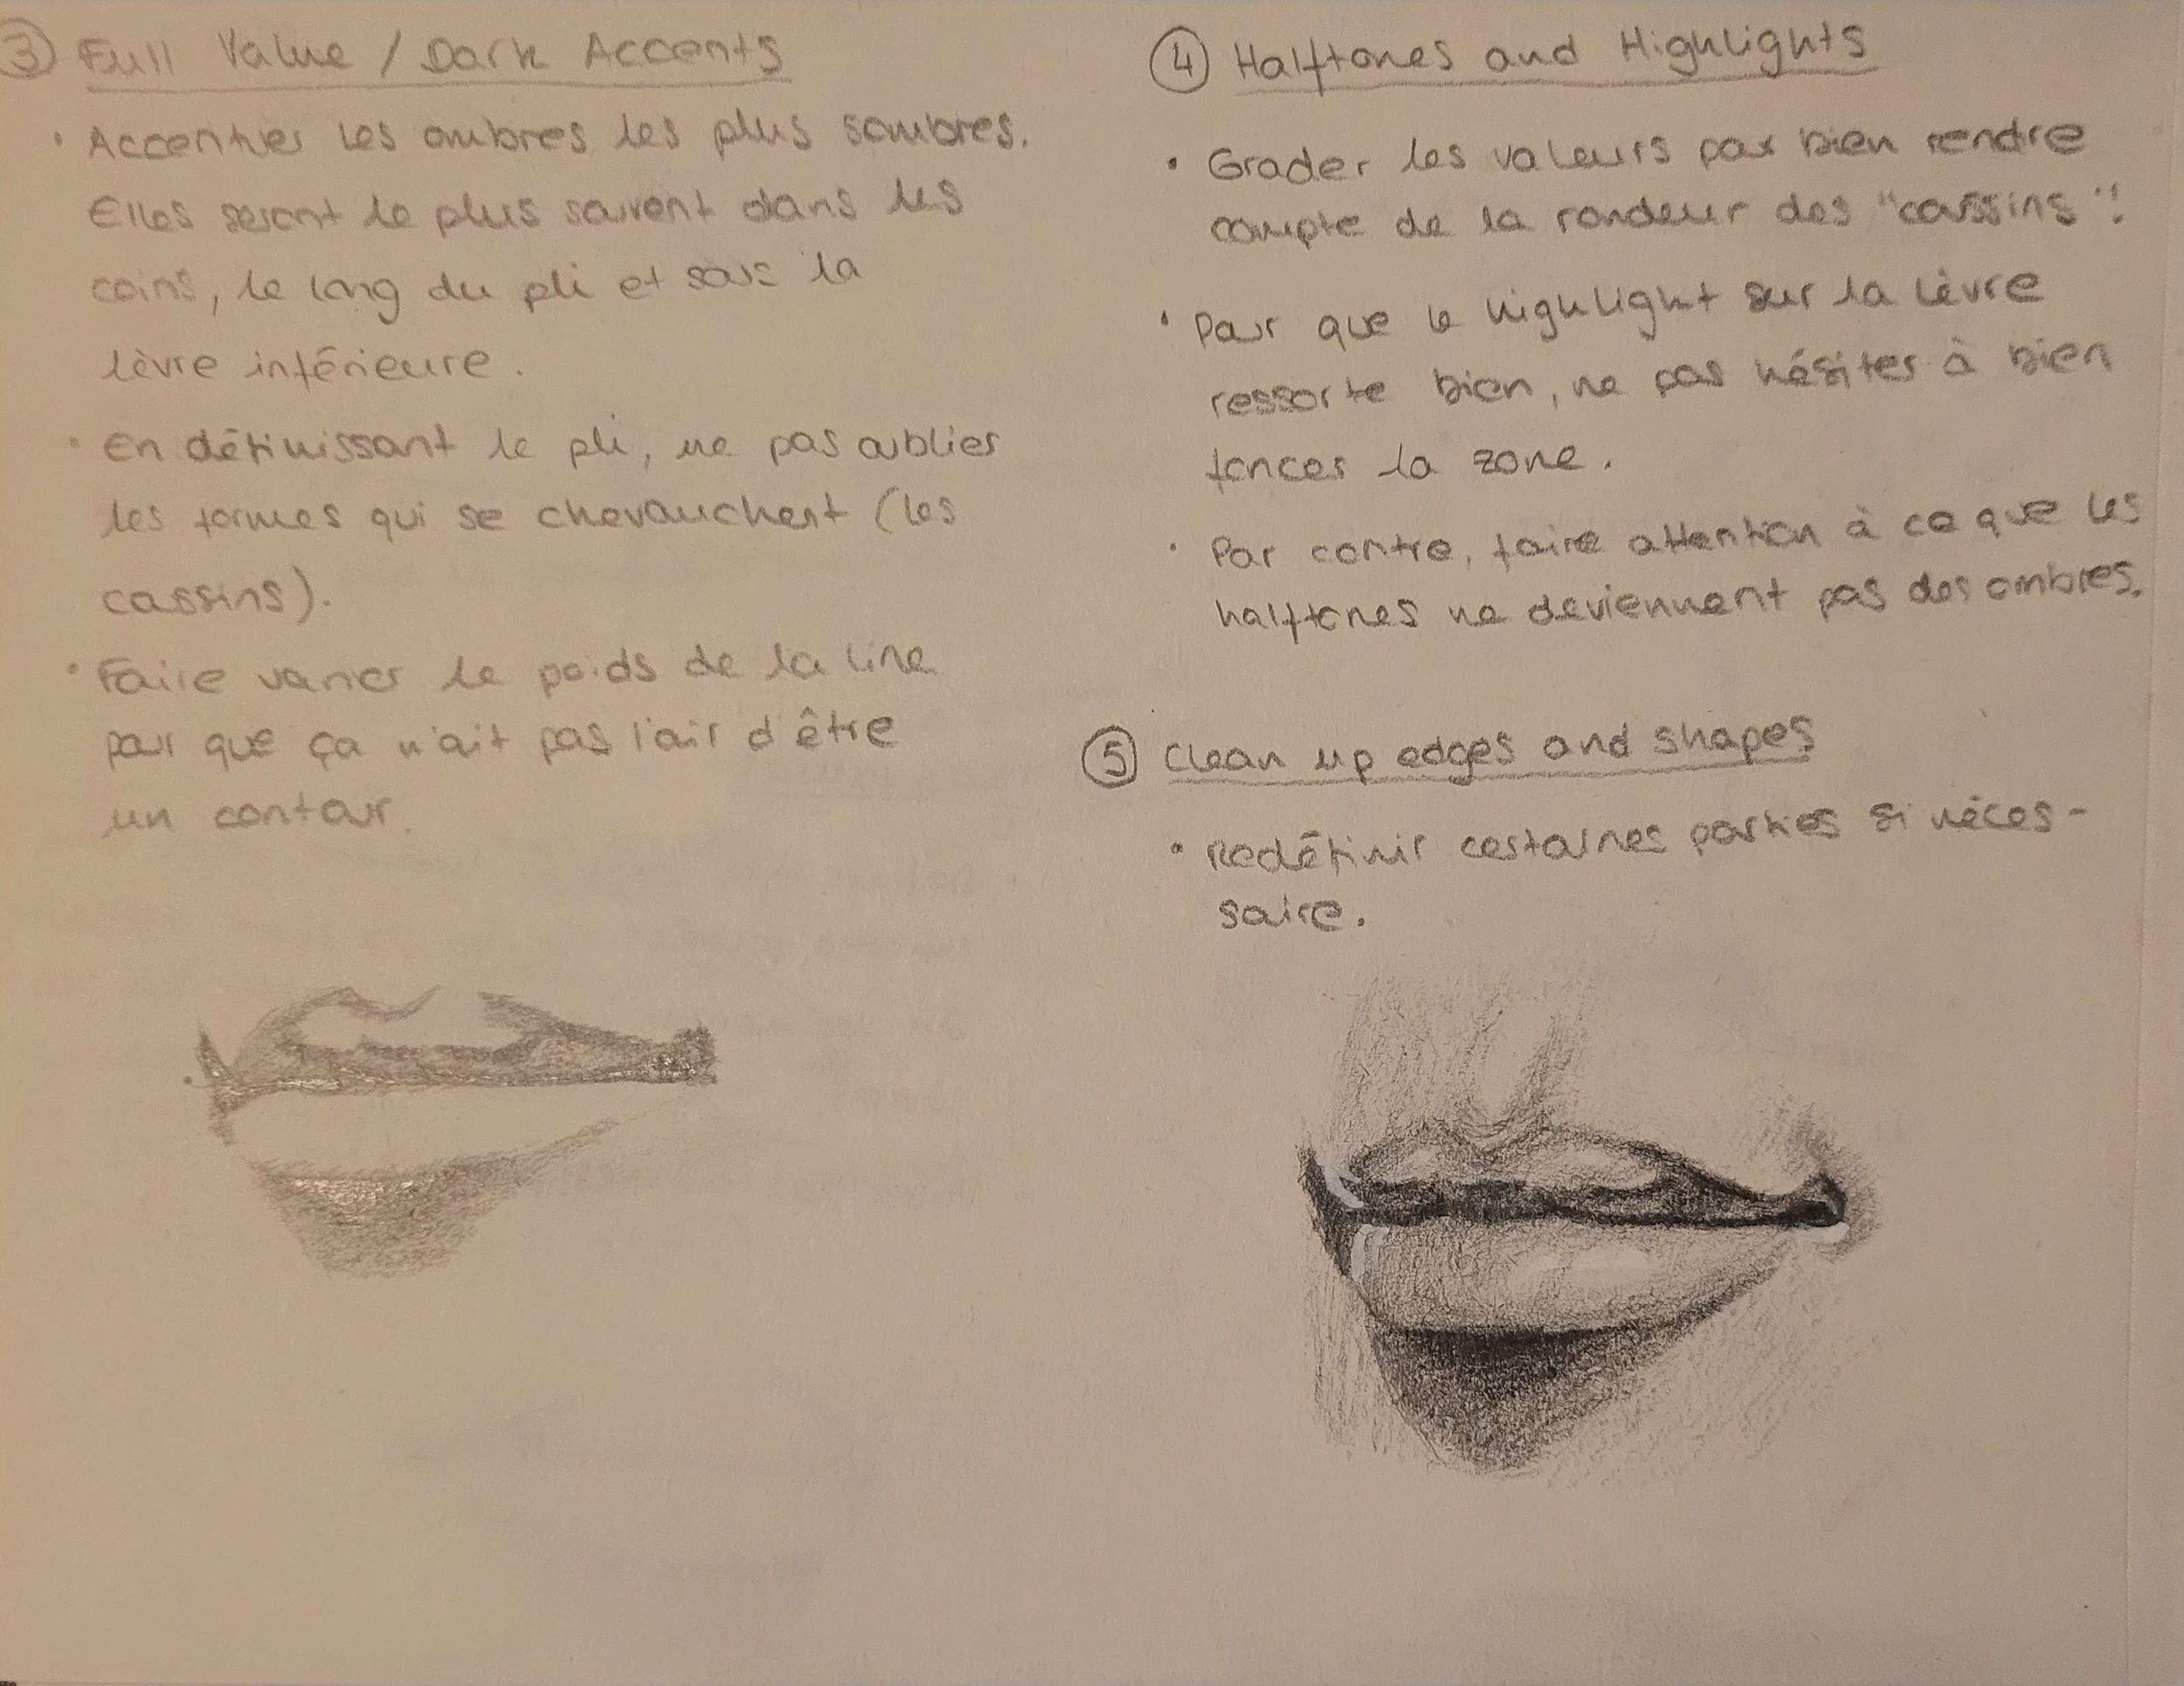 ③ Full Value / Dark Accents
• Accentuer les ombres les plus sombres.
Elles seront le plus souvent dans les
coins, le long du pli et sous la
lèvre inférieure.
• En définissant le pli, ne pas oublier
les formes qui se chevauchent (les
cassins).
• Faire varier le poids de la line
pour que ça n'ait pas l'air d'être
un contour.
④ Halftones and Highlights
• Grader les valeurs pour bien rendre
compte de la rondeur des "coussins".
• Pour que le highlight sur la lèvre
ressorte bien, ne pas hésiter à bien
foncer la zone.
• Par contre, faire attention à ce que les
halftones ne deviennent pas des ombres.
⑤ Clean up edges and shapes
• Redéfinir certaines parties si néces-
saire.